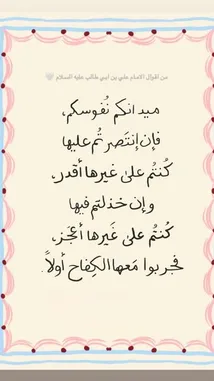 من اقوال الامام علي بن ابي طالب عليه السلام
ميدانكم نُفوسكم،
فإن إنتَصرتُم عليها
كُنتُم على غيرها أقدر،
وإن خذلتم فيها
كُنتُم على غَيرها أعجز،
فجربوا مَعها الكِفاح أولاً.